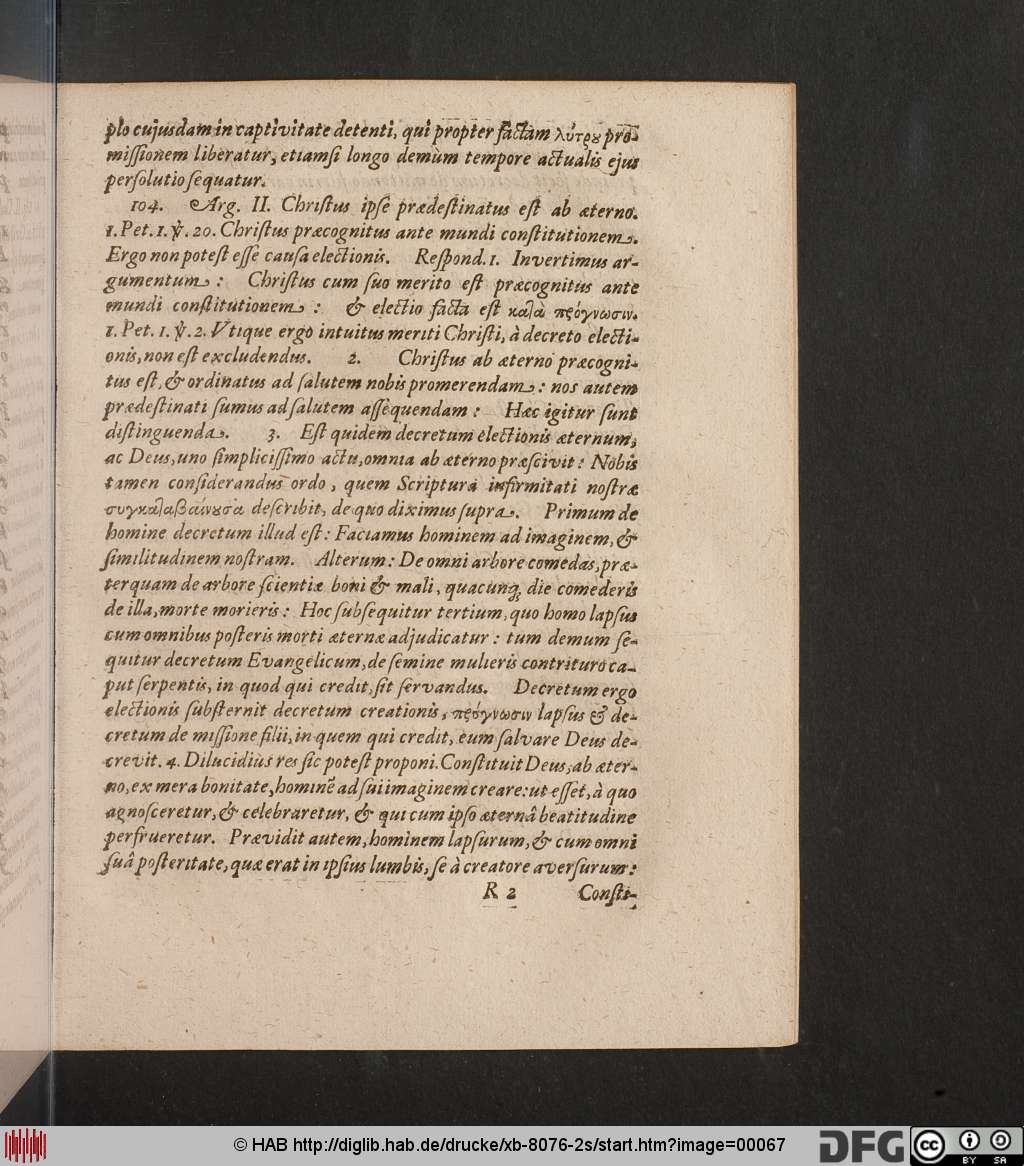 plo cujusdam in captivitate detenti, qui propter factam λύτρȣ pro-
miſſionem liberatur, etiamſi longo demùm tempore actualis ejus
perſolutio ſequatur.
104. Arg. II. Chriſtus ipſe prædeſtinatus eſt ab æterno.
1. Pet. 1. ℣. 20. Chriſtus præcognitus ante mundi conſtitutionem.
Ergo non poteſt eſſe cauſa electionis. Reſpond. 1. Invertimus ar-
gumentum: Chriſtus cum ſuo merito eſt præcognitus ante
mundi conſtitutionem: & electio facta eſt καλὰ πρόγνωσιν.
1. Pet. 1. ℣. 2. Utique ergo intuitus meriti Chriſti, à decreto electi-
onis, non eſt excludendus. 2. Chriſtus ab æterno præcogni-
tus eſt, & ordinatus ad ſalutem nobis promerendam: nos autem
prædeſtinati ſumus ad ſalutem aſſequendam: Hæc igitur ſunt
diſtinguenda. 3. Eſt quidem decretum electionis æternum,
ac Deus, uno ſimpliciſſimo actu, omnia ab æterno præſcivit: Nobis
tamen conſiderandus ordo, quem Scriptura infirmitati noſtræ
συγκαλαβαίνȣσα deſcribit, de quo diximus ſupra. Primum de
homine decretum illud eſt: Faciamus hominem ad imaginem, &
ſimilitudinem noſtram. Alterum: De omni arbore comedas, præ-
terquam de arbore ſcientiæ boni & mali, quacunq; die comederis
de illa, morte morieris: Hoc ſubſequitur tertium, quo homo lapſus
cum omnibus poſteris morti æternæ adjudicatur: tum demum ſe-
quitur decretum Evangelicum, de ſemine mulieris contrituro ca-
put ſerpentis, in quod qui credit, ſit ſervandus. Decretum ergo
electionis ſubſternit decretum creationis, πρόγνωσιν lapſus & de-
cretum de miſſione filii, in quem qui credit, eum ſalvare Deus de-
crevit. 4. Dilucidiùs res ſic poteſt proponi. Conſtituit Deus, ab æter-
no, ex mera bonitate, hominē ad ſui imaginem creare: ut eſſet, à quo
agnoſceretur, & celebraretur, & qui cum ipſo æternâ beatitudine
perfrueretur. Prævidit autem, hominem lapſurum, & cum omni
ſuâ poſteritate, quæ erat in ipſius lumbis, ſe à creatore averſurum:
R 2 Conſti-
© HAB http://diglib.hab.de/drucke/xb-8076-2s/start.htm?image=00067
DFG
cc BY SA